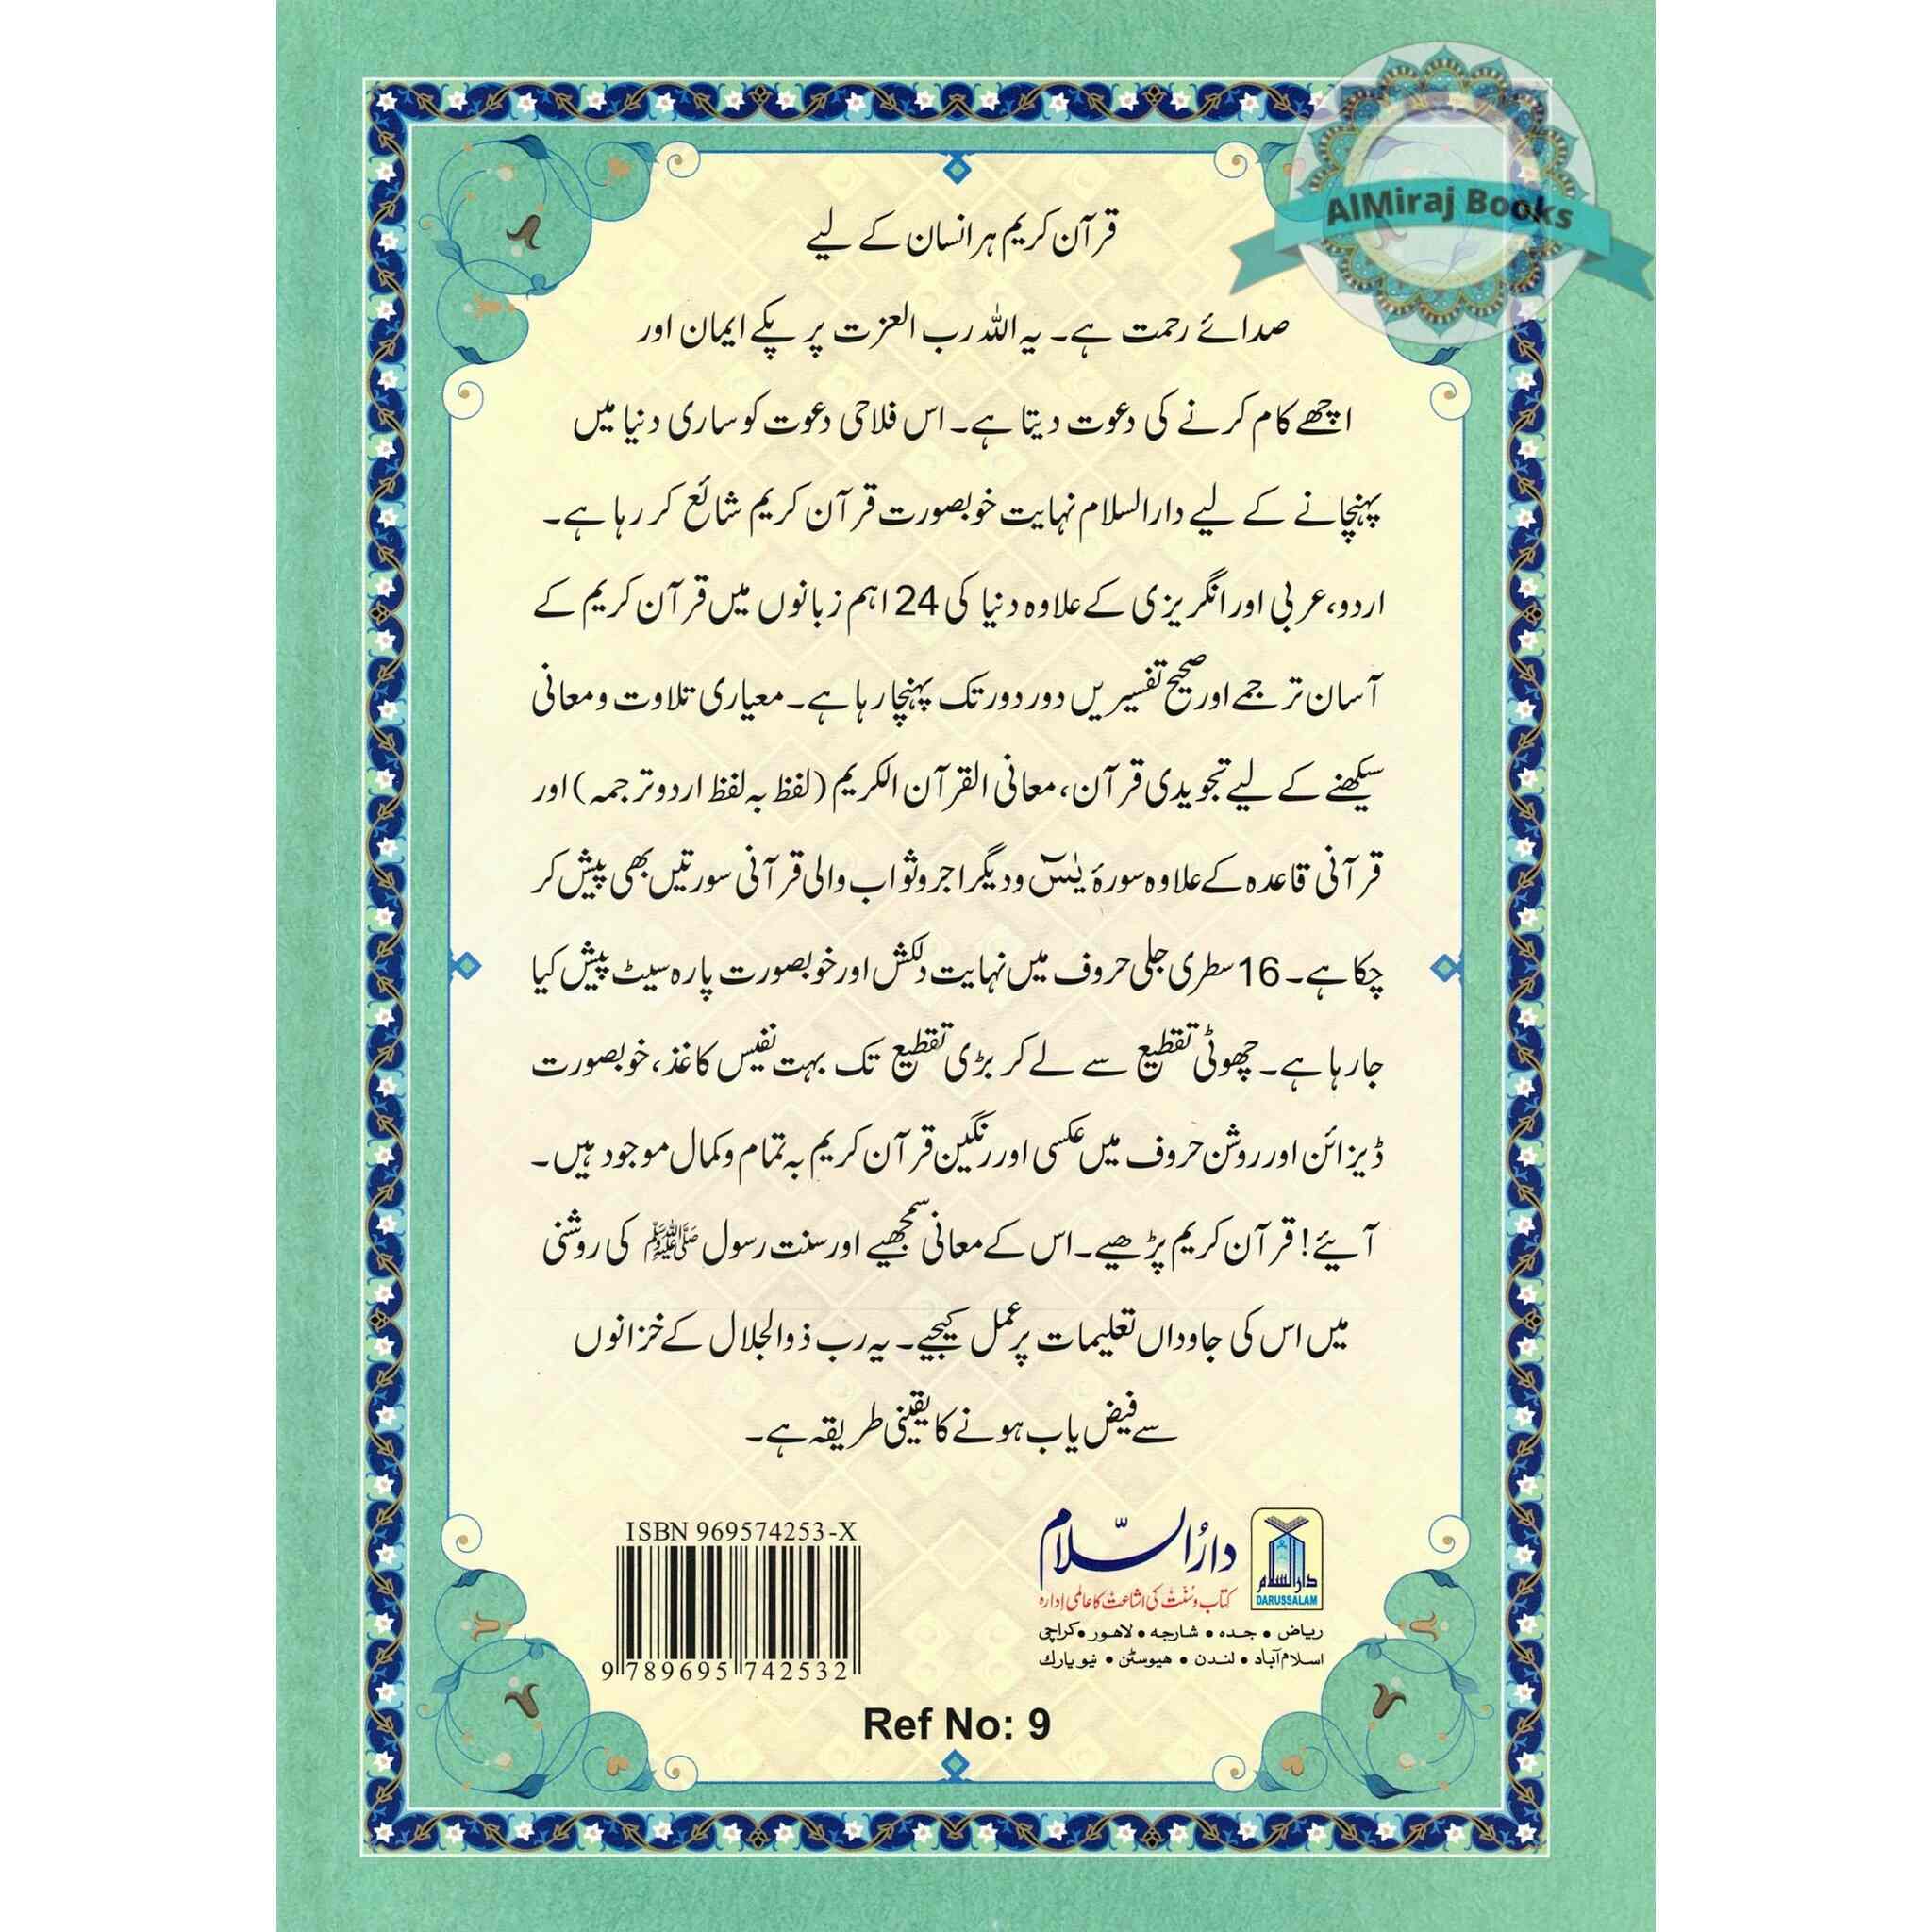 AlMiraj Books
قرآن کریم ہر انسان کے لیے
صدائے رحمت ہے۔ یہ اللہ رب العزت پر پکے ایمان اور
اچھے کام کرنے کی دعوت دیتا ہے۔ اس فلاحی دعوت کو ساری دنیا میں
پہنچانے کے لیے دارالسلام نہایت خوبصورت قرآن کریم شائع کر رہا ہے۔
اردو، عربی اور انگریزی کے علاوہ دنیا کی 24 اہم زبانوں میں قرآن کریم کے
آسان ترجمے اور صحیح تفسیریں دور دور تک پہنچا رہا ہے۔ معیاری تلاوت و معانی
سیکھنے کے لیے تجویدی قرآن، معانی القرآن الکریم (لفظ بہ لفظ اردو ترجمہ) اور
قرآنی قاعدہ کے علاوہ سورۂ یٰسٓ و دیگر اجر و ثواب والی قرآنی سورتیں بھی پیش کر
چکا ہے۔ 16 سطری جلی حروف میں نہایت دلکش اور خوبصورت پارہ سیٹ پیش کیا
جا رہا ہے۔ چھوٹی تقطیع سے لے کر بڑی تقطیع تک بہت نفیس کاغذ، خوبصورت
ڈیزائن اور روشن حروف میں عکسی اور رنگین قرآن کریم بہ تمام و کمال موجود ہیں۔
آیئے! قرآن کریم پڑھیے۔ اس کے معانی سمجھیے اور سنت رسول ﷺ کی روشنی
میں اس کی جاوداں تعلیمات پر عمل کیجیے۔ یہ رب ذوالجلال کے خزانوں
سے فیض یاب ہونے کا یقینی طریقہ ہے۔
دارُالسّلام
کتاب و سُنّت کی اشاعت کا عالمی ادارہ
ریاض • جدہ • شارجہ • لاہور • کراچی
اسلام آباد • لندن • ھیوسٹن • نیو یارک
دارالسلام
DARUSSALAM
ISBN 969574253-X
9 789695 742532
Ref No: 9